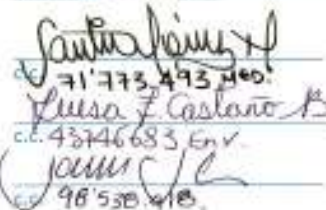 c.c. 71'773.493 Med.
Luisa F. Castaño B
c.c. 43746683 Env.
c.c. 98'538.418.